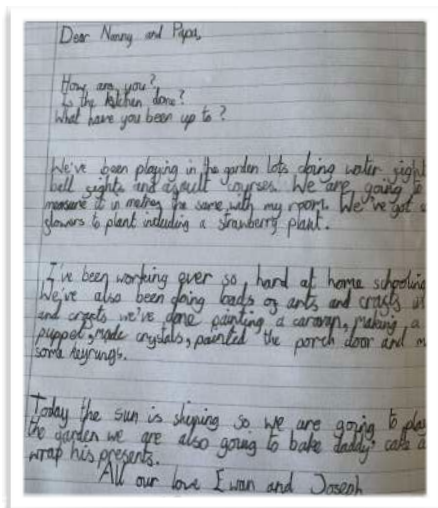 Dear Nanny and Papa,
How are you?
Is the kitchen done?
What have you been up to?
We've been playing in the garden lots doing water fight
ball fights and assult courses. We are going to
measure it in metres the same with my room. We've got
flowers to plant including a strawberry plant.
I've been working ever so hard at home schooling
We've also been doing loads of arts and crafts
and crafts we've done painting a caravan, making a
puppet, made crystals, painted the porch door and
some keyrings.
Today the sun is shining so we are going to play
the garden we are also going to bake daddy cake
wrap his presents.
All our love Ewan and Joseph